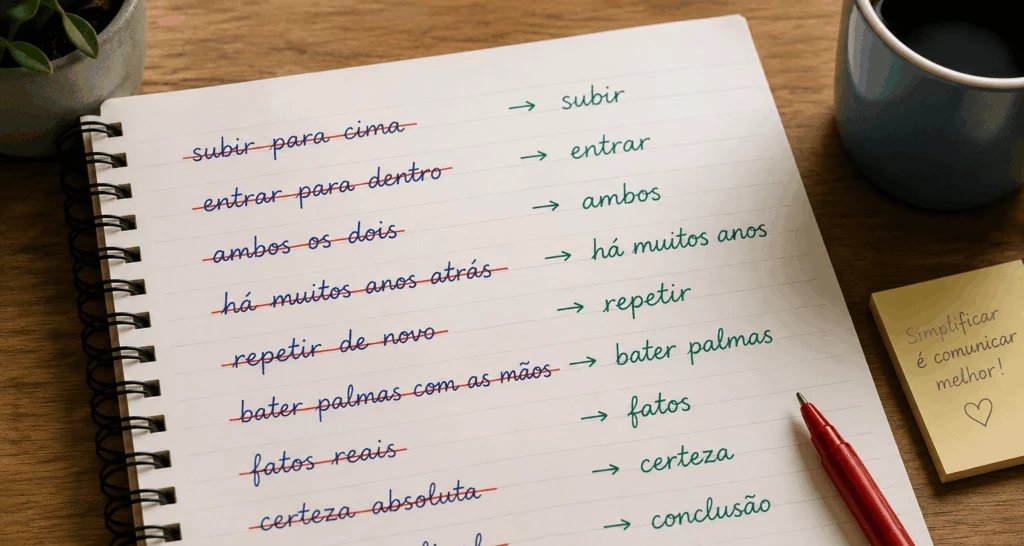 subir para cima → subir
entrar para dentro → entrar
ambos os dois → ambos
há muitos anos atrás → há muitos anos
repetir de novo → repetir
bater palmas com as mãos → bater palmas
fatos reais → fatos
certeza absoluta → certeza
→ conclusão
Simplificar
é comunicar
melhor!